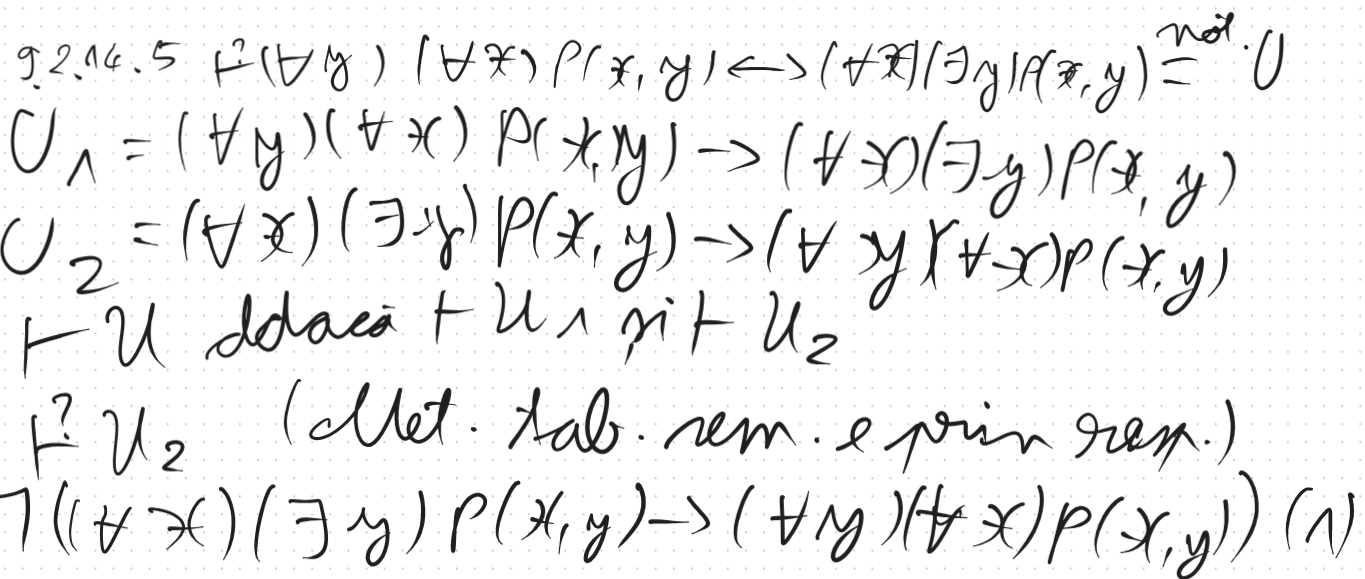 9.2.14.5 ⊢? (∀y)(∀x)P(x,y)↔(∀x)(∃y)P(x,y) =not. U
U1 = (∀y)(∀x)P(x,y)→(∀x)(∃y)P(x,y)
U2 = (∀x)(∃y)P(x,y)→(∀y)(∀x)P(x,y)
⊢ U ddacă ⊢ U1 și ⊢ U2
⊢? U2 (Met. tab. sem. e prin resp.)
¬((∀x)(∃y)P(x,y)→(∀y)(∀x)P(x,y)) (1)